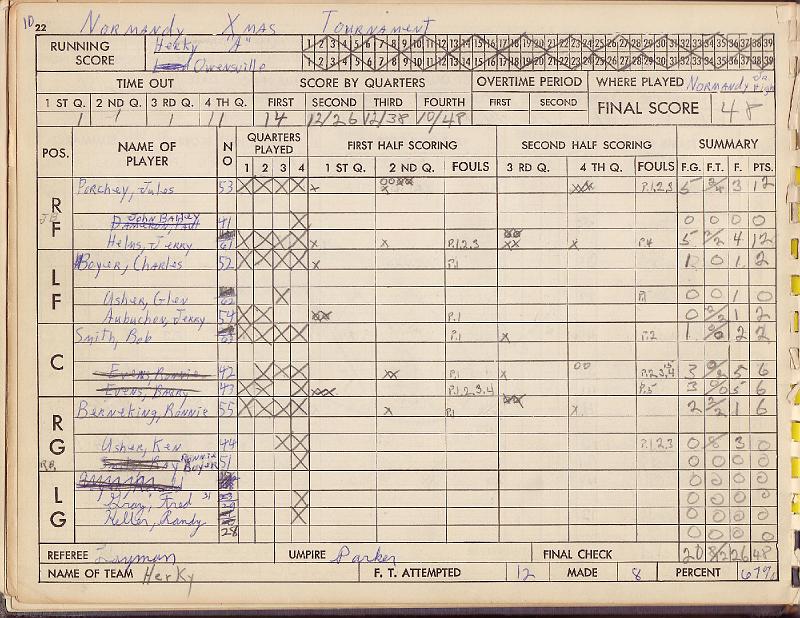 10 22 NORMANDY XMAS TOURNAMENT
RUNNING SCORE
Herky "A" 1 2 3 4 5 6 7 8 9 10 11 12 13 14 15 16 17 18 19 20 21 22 23 24 25 26 27 28 29 30 31 32 33 34 35 36 37 38 39
Owensville 1 2 3 4 5 6 7 8 9 10 11 12 13 14 15 16 17 18 19 20 21 22 23 24 25 26 27 28 29 30 31 32 33 34 35 36 37 38 39
TIME OUT SCORE BY QUARTERS OVERTIME PERIOD WHERE PLAYED NORMANDY Jr. High
1 ST Q. 2 ND Q. 3 RD Q. 4 TH Q. FIRST SECOND THIRD FOURTH FIRST SECOND FINAL SCORE 48
1 1 1 11 14 12/26 12/38 10/48
POS. NAME OF PLAYER NO QUARTERS PLAYED FIRST HALF SCORING SECOND HALF SCORING SUMMARY
1 2 3 4 1 ST Q. 2 ND Q. FOULS 3 RD Q. 4 TH Q. FOULS F.G. F.T. F. PTS.
RF Porchey, Jules 53 X X X X x P.1,2,3 5 2/4 3 12
John Bailey 41 X 0 0 0 0
Helms, Jerry 61 X X X X x x P.1,2,3 x P.4 5 2/2 4 12
LF Boyer, Charles 52 X X X X x P.1 1 0 1 2
Usher, Glen X P.1 0 0 1 0
Aubuchon, Jerry 54 X X P.1 0 2/2 1 2
C Smith, Bob X X X X P.1 x P.2 1 2 2
Evens, Ronnie 42 X X X P.1 x 00 P.2,3,4 3 0/2 5 6
Evens, Barry 43 X X X P.1,2,3,4 P.5 3 5 6
RG Berneking, Ronnie 55 X X X X x P.1 x 2 2/2 1 6
Usher, Ken 44 X X P.1,2,3 0 3 0
Ronnie Boyer 51 X 0 0 0 0
0 0 0 0
LG Gray, Fred 31 X 0 0 0 0
Keller, Randy X 0 0 0 0
28 0 0 0 0
REFEREE Layman UMPIRE Parker FINAL CHECK 20 8/12 26 48
NAME OF TEAM Herky F. T. ATTEMPTED 12 MADE 8 PERCENT 67%